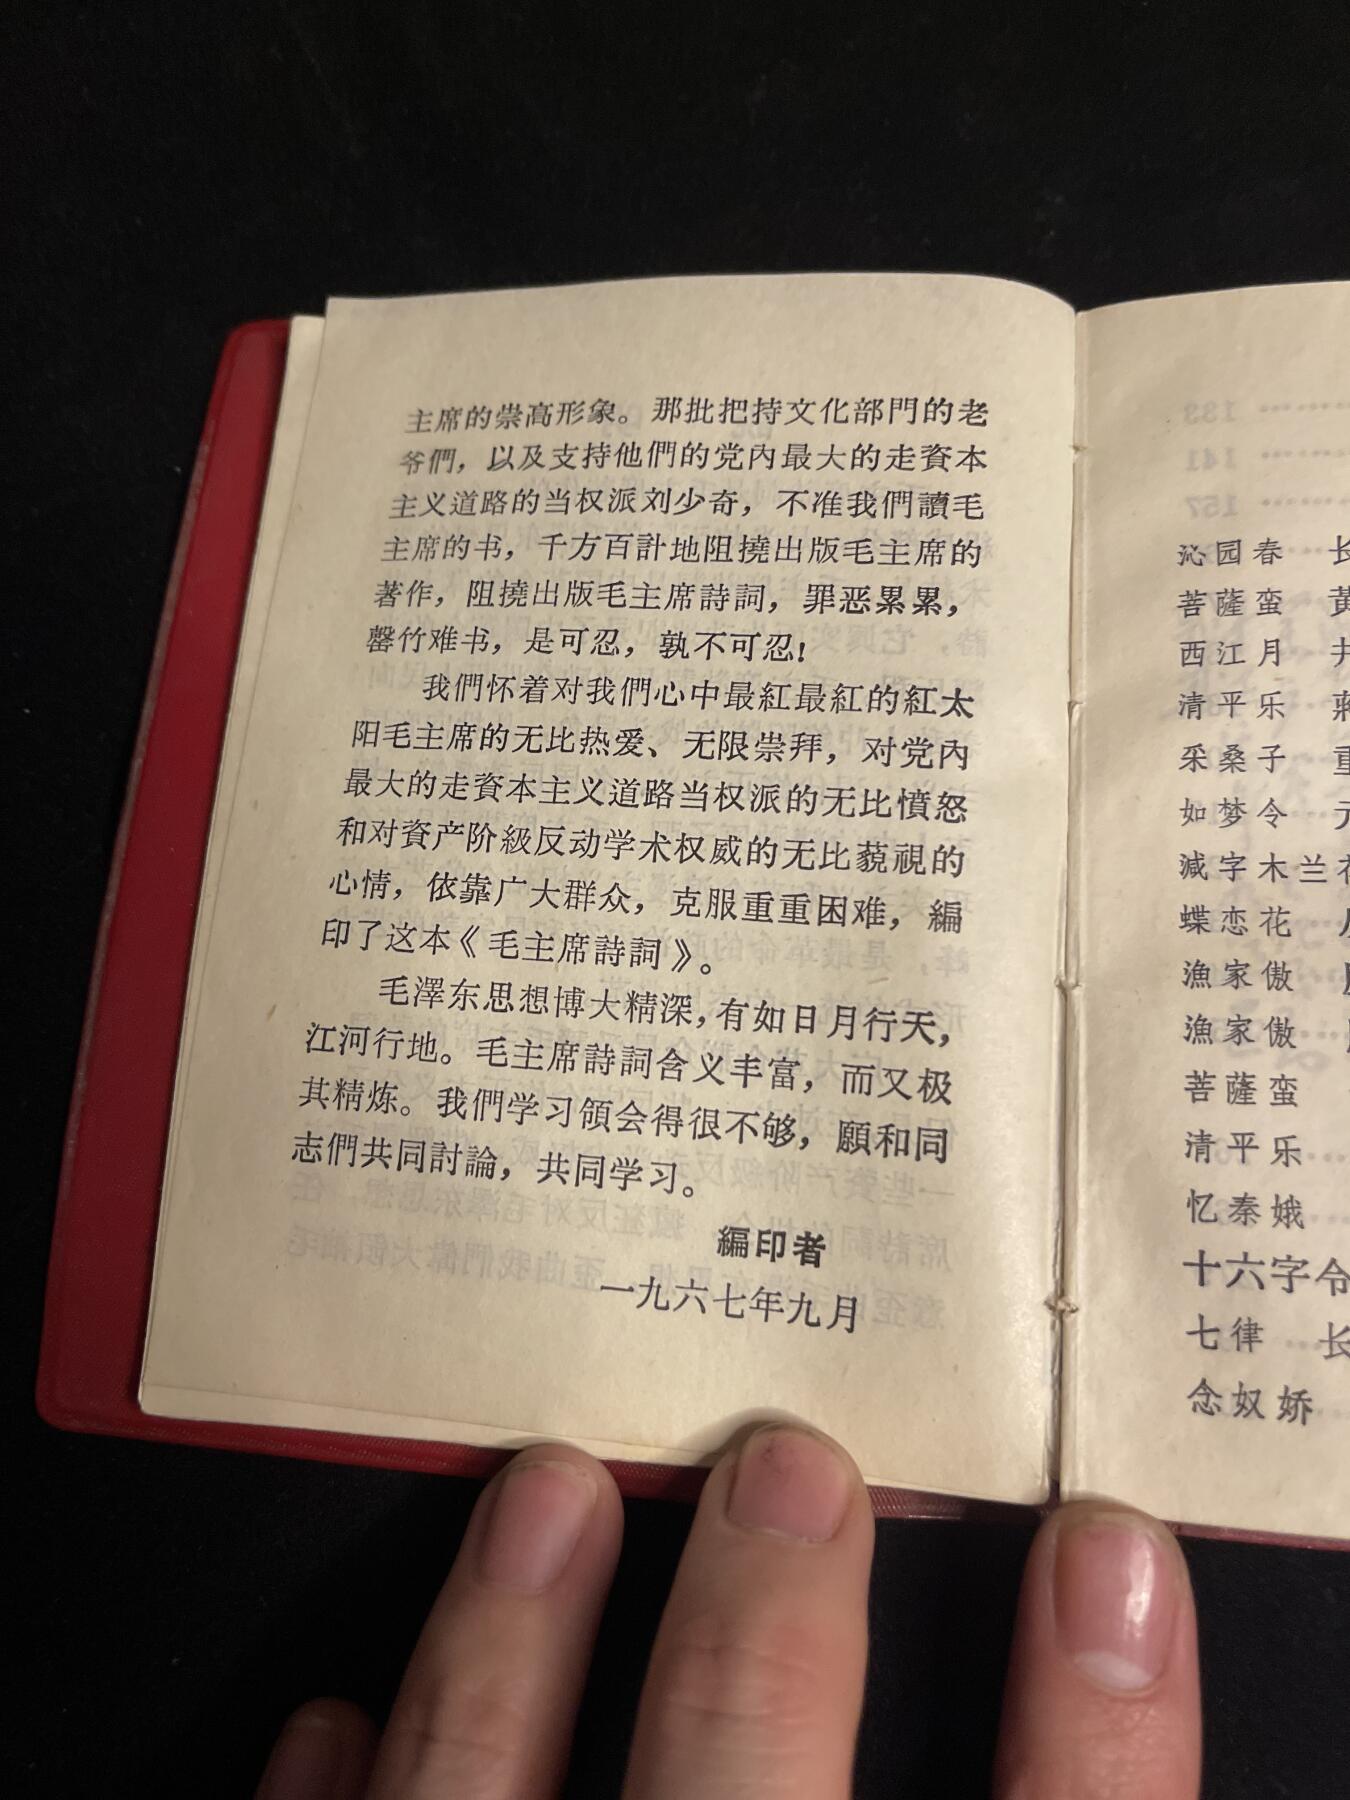 主席的崇高形象。那批把持文化部門的老
爷們，以及支持他們的党內最大的走資本
主义道路的当权派刘少奇，不准我們讀毛
主席的书，千方百計地阻撓出版毛主席的
著作，阻撓出版毛主席詩詞，罪恶累累，
罄竹难书，是可忍，孰不可忍！
我們怀着对我們心中最紅最紅的紅太
阳毛主席的无比热爱、无限崇拜，对党內
最大的走資本主义道路当权派的无比憤怒
和对資产阶級反动学术权威的无比藐視的
心情，依靠广大群众，克服重重困难，編
印了这本《毛主席詩詞》。
毛澤东思想博大精深，有如日月行天，
江河行地。毛主席詩詞含义丰富，而又极
其精炼。我們学习領会得很不够，願和同
志們共同討論，共同学习。
編印者
一九六七年九月
沁园春 长
菩薩蛮 黄
西江月 井
清平乐 蔣
采桑子 重
如梦令 元
減字木兰花
蝶恋花
漁家傲
漁家傲
菩薩蛮
清平乐
忆秦娥
十六字令
七律 长
念奴娇